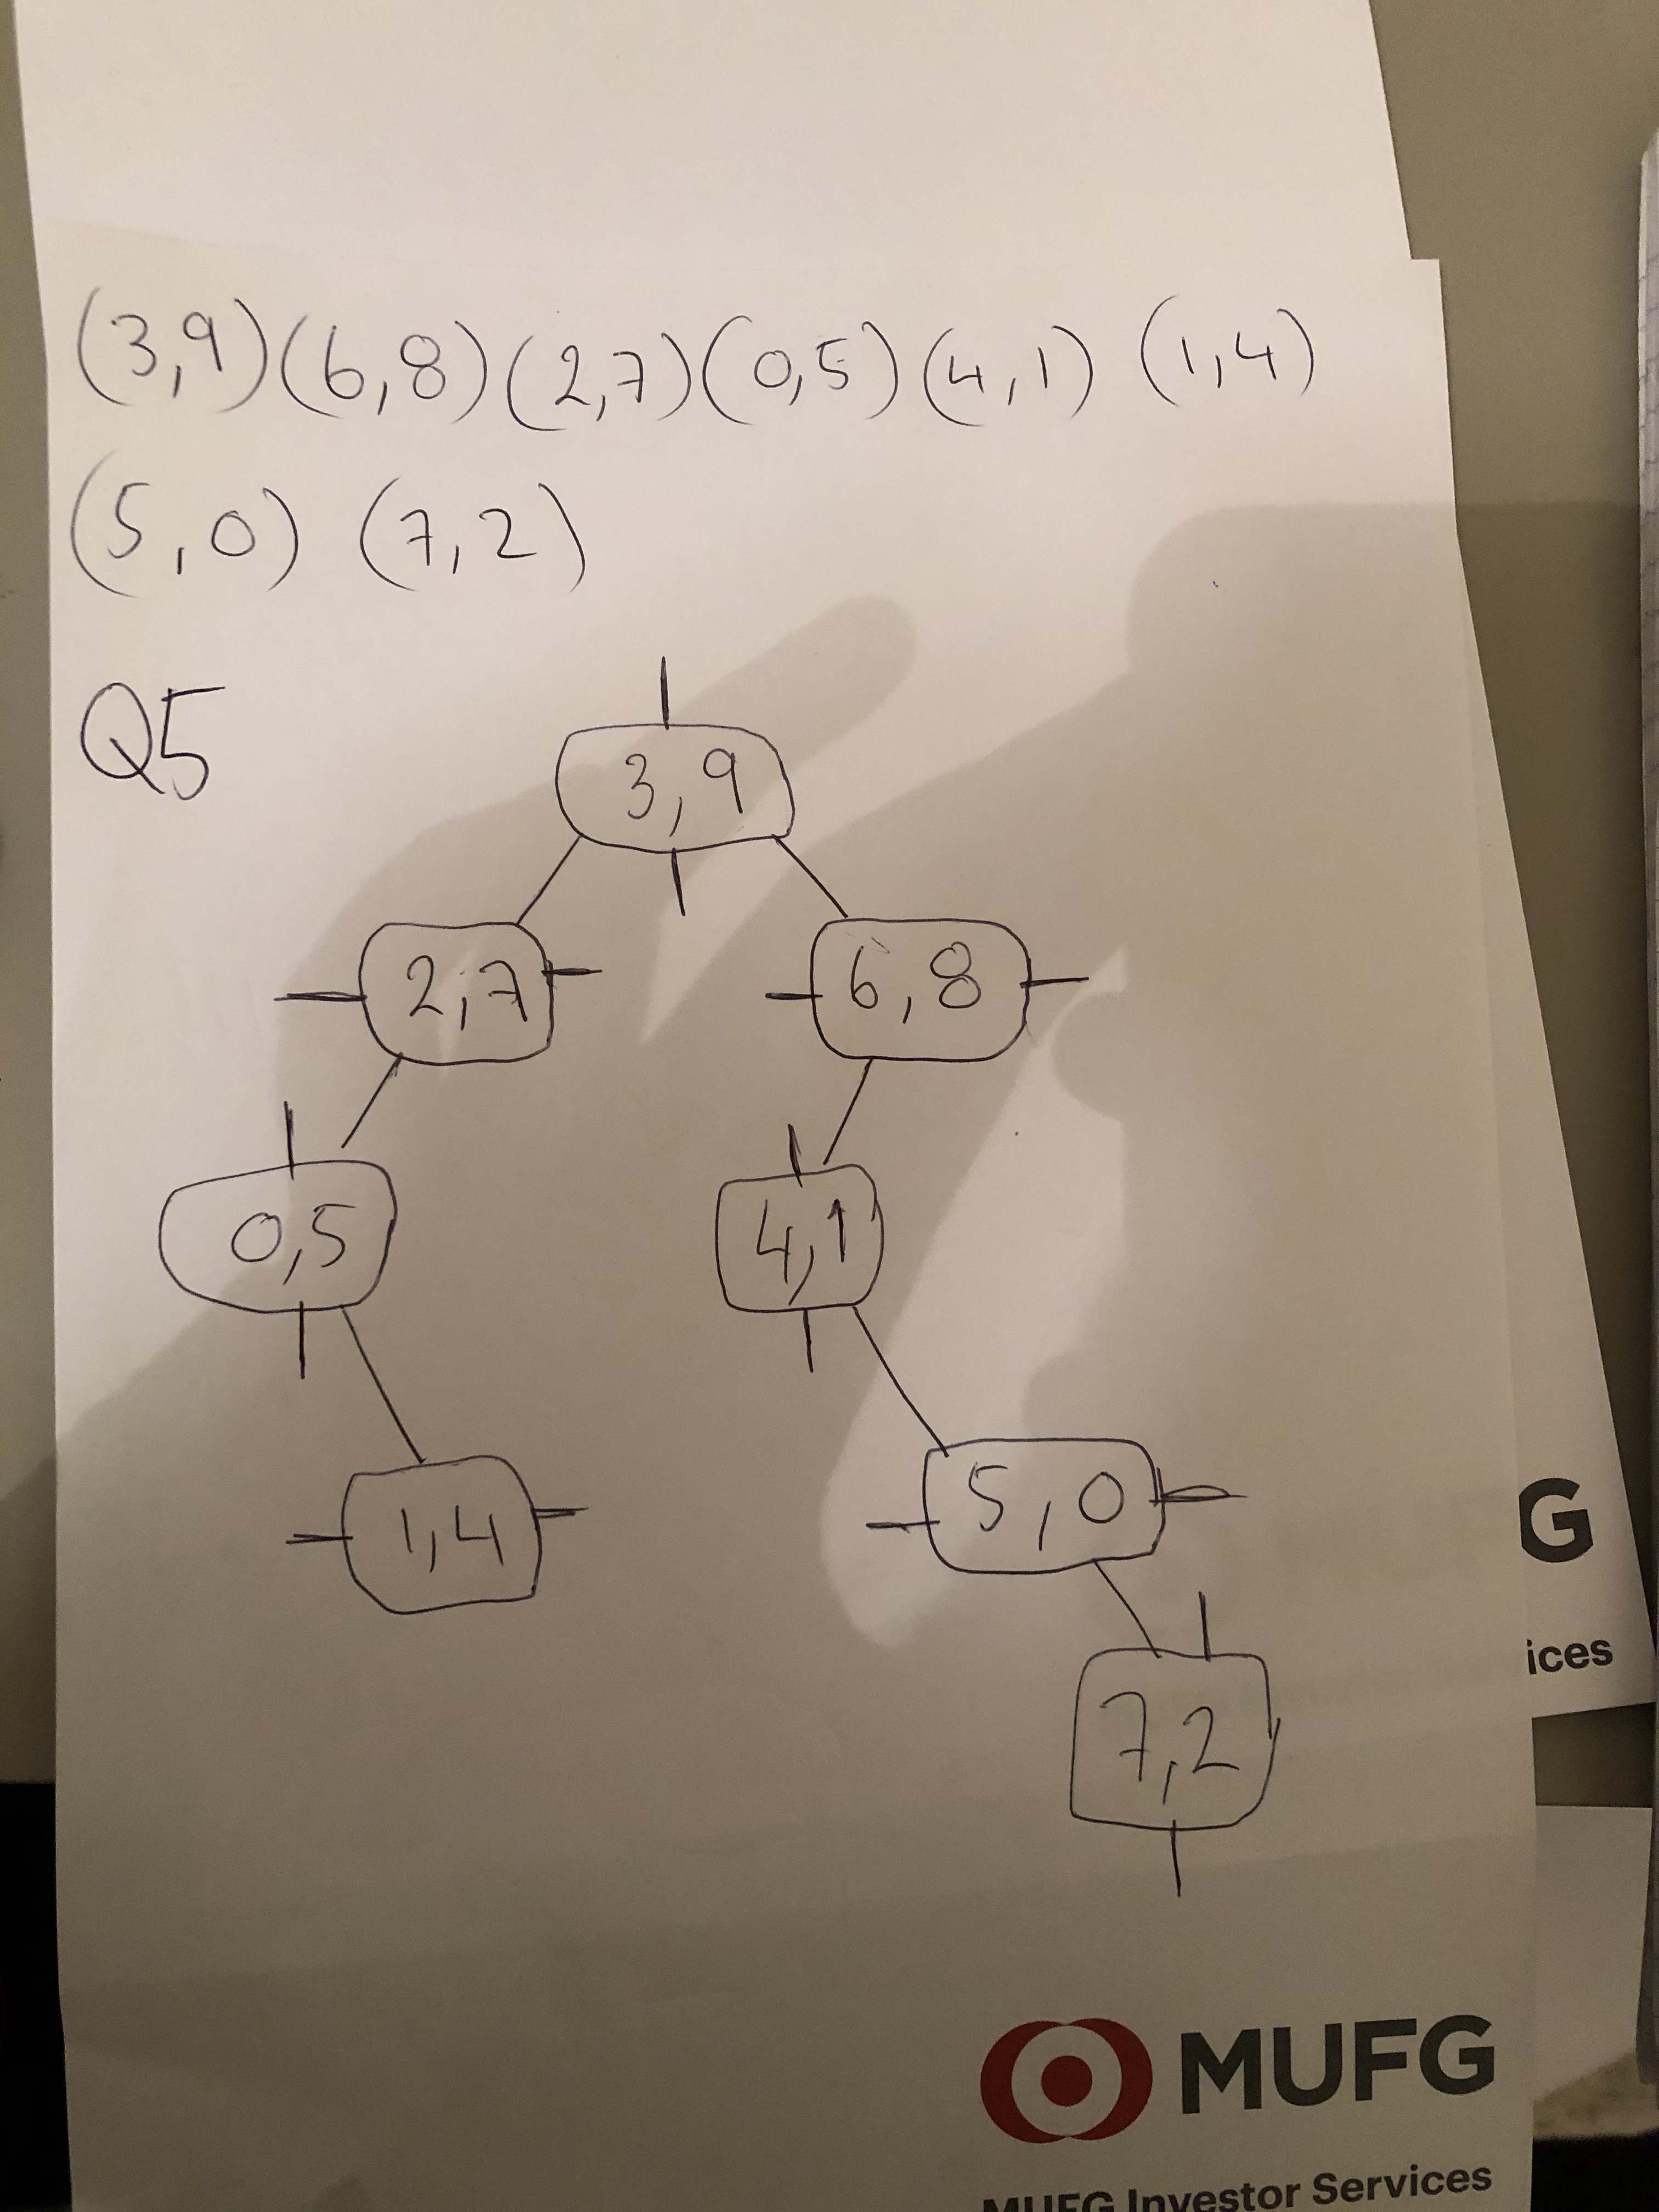 (3,9) (6,8) (2,7) (0,5) (4,1) (1,4)
(5,0) (7,2)
Q5
3,9
2,7
6,8
0,5
4,1
1,4
5,0
7,2
G
ices
MUFG
MUFG Investor Services